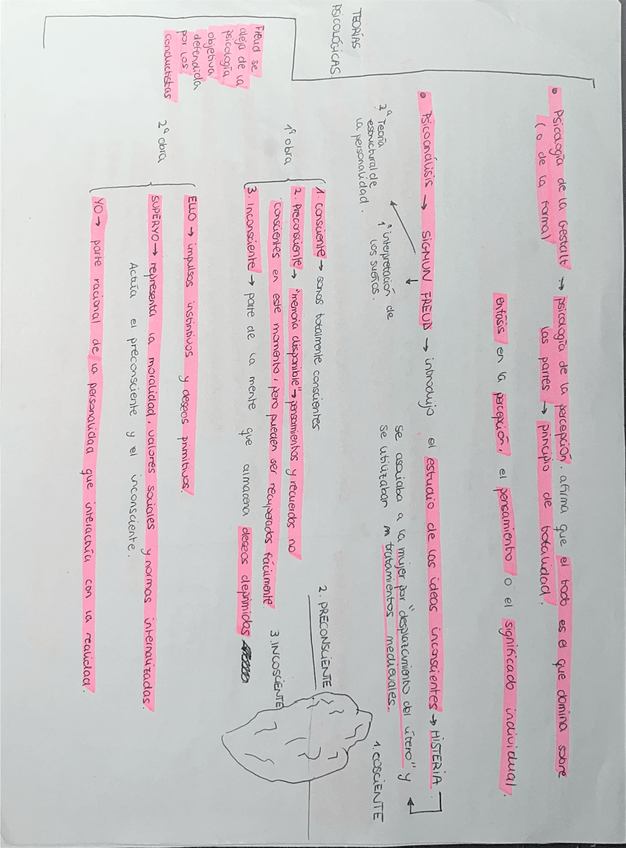 TEORÍAS
PSICOLÓGICAS
• Psicología de la Gestalt → psicología de la percepción. afirma que el todo es el que domina sobre
(o de la forma)
las partes → principio de totalidad.
énfasis en la percepción, el pensamiento o el significado individual.
• Psicoanálisis → SIGMUN FREUD → introdujo el estudio de las ideas inconscientes → HISTERIA
se asociaba a la mujer por "desplazamiento del útero" y
se utilizaban tratamientos medievales.
1ª interpretación de
los sueños.
2ª Teoría
estructural de
la personalidad.
1ª obra
1. consciente → somos totalmente conscientes
2. Preconsciente → "memoria disponible" → pensamientos y recuerdos no
conscientes en este momento, pero pueden ser recuperados fácilmente
3. Inconsciente → parte de la mente que almacena deseos deprimidos
1. COSCIENTE
2. PRECONSCIENTE
3. INCOSCIENTE
Freud se
aleja de la
psicología
objetiva
defendida
por los
conductistas
2ª obra
ELLO → impulsos instintivos y deseos primitivos.
SUPERYO → representa la moralidad, valores sociales y normas internalizadas.
Actúa el preconsciente y el inconsciente.
YO → parte racional de la personalidad que interactúa con la realidad.